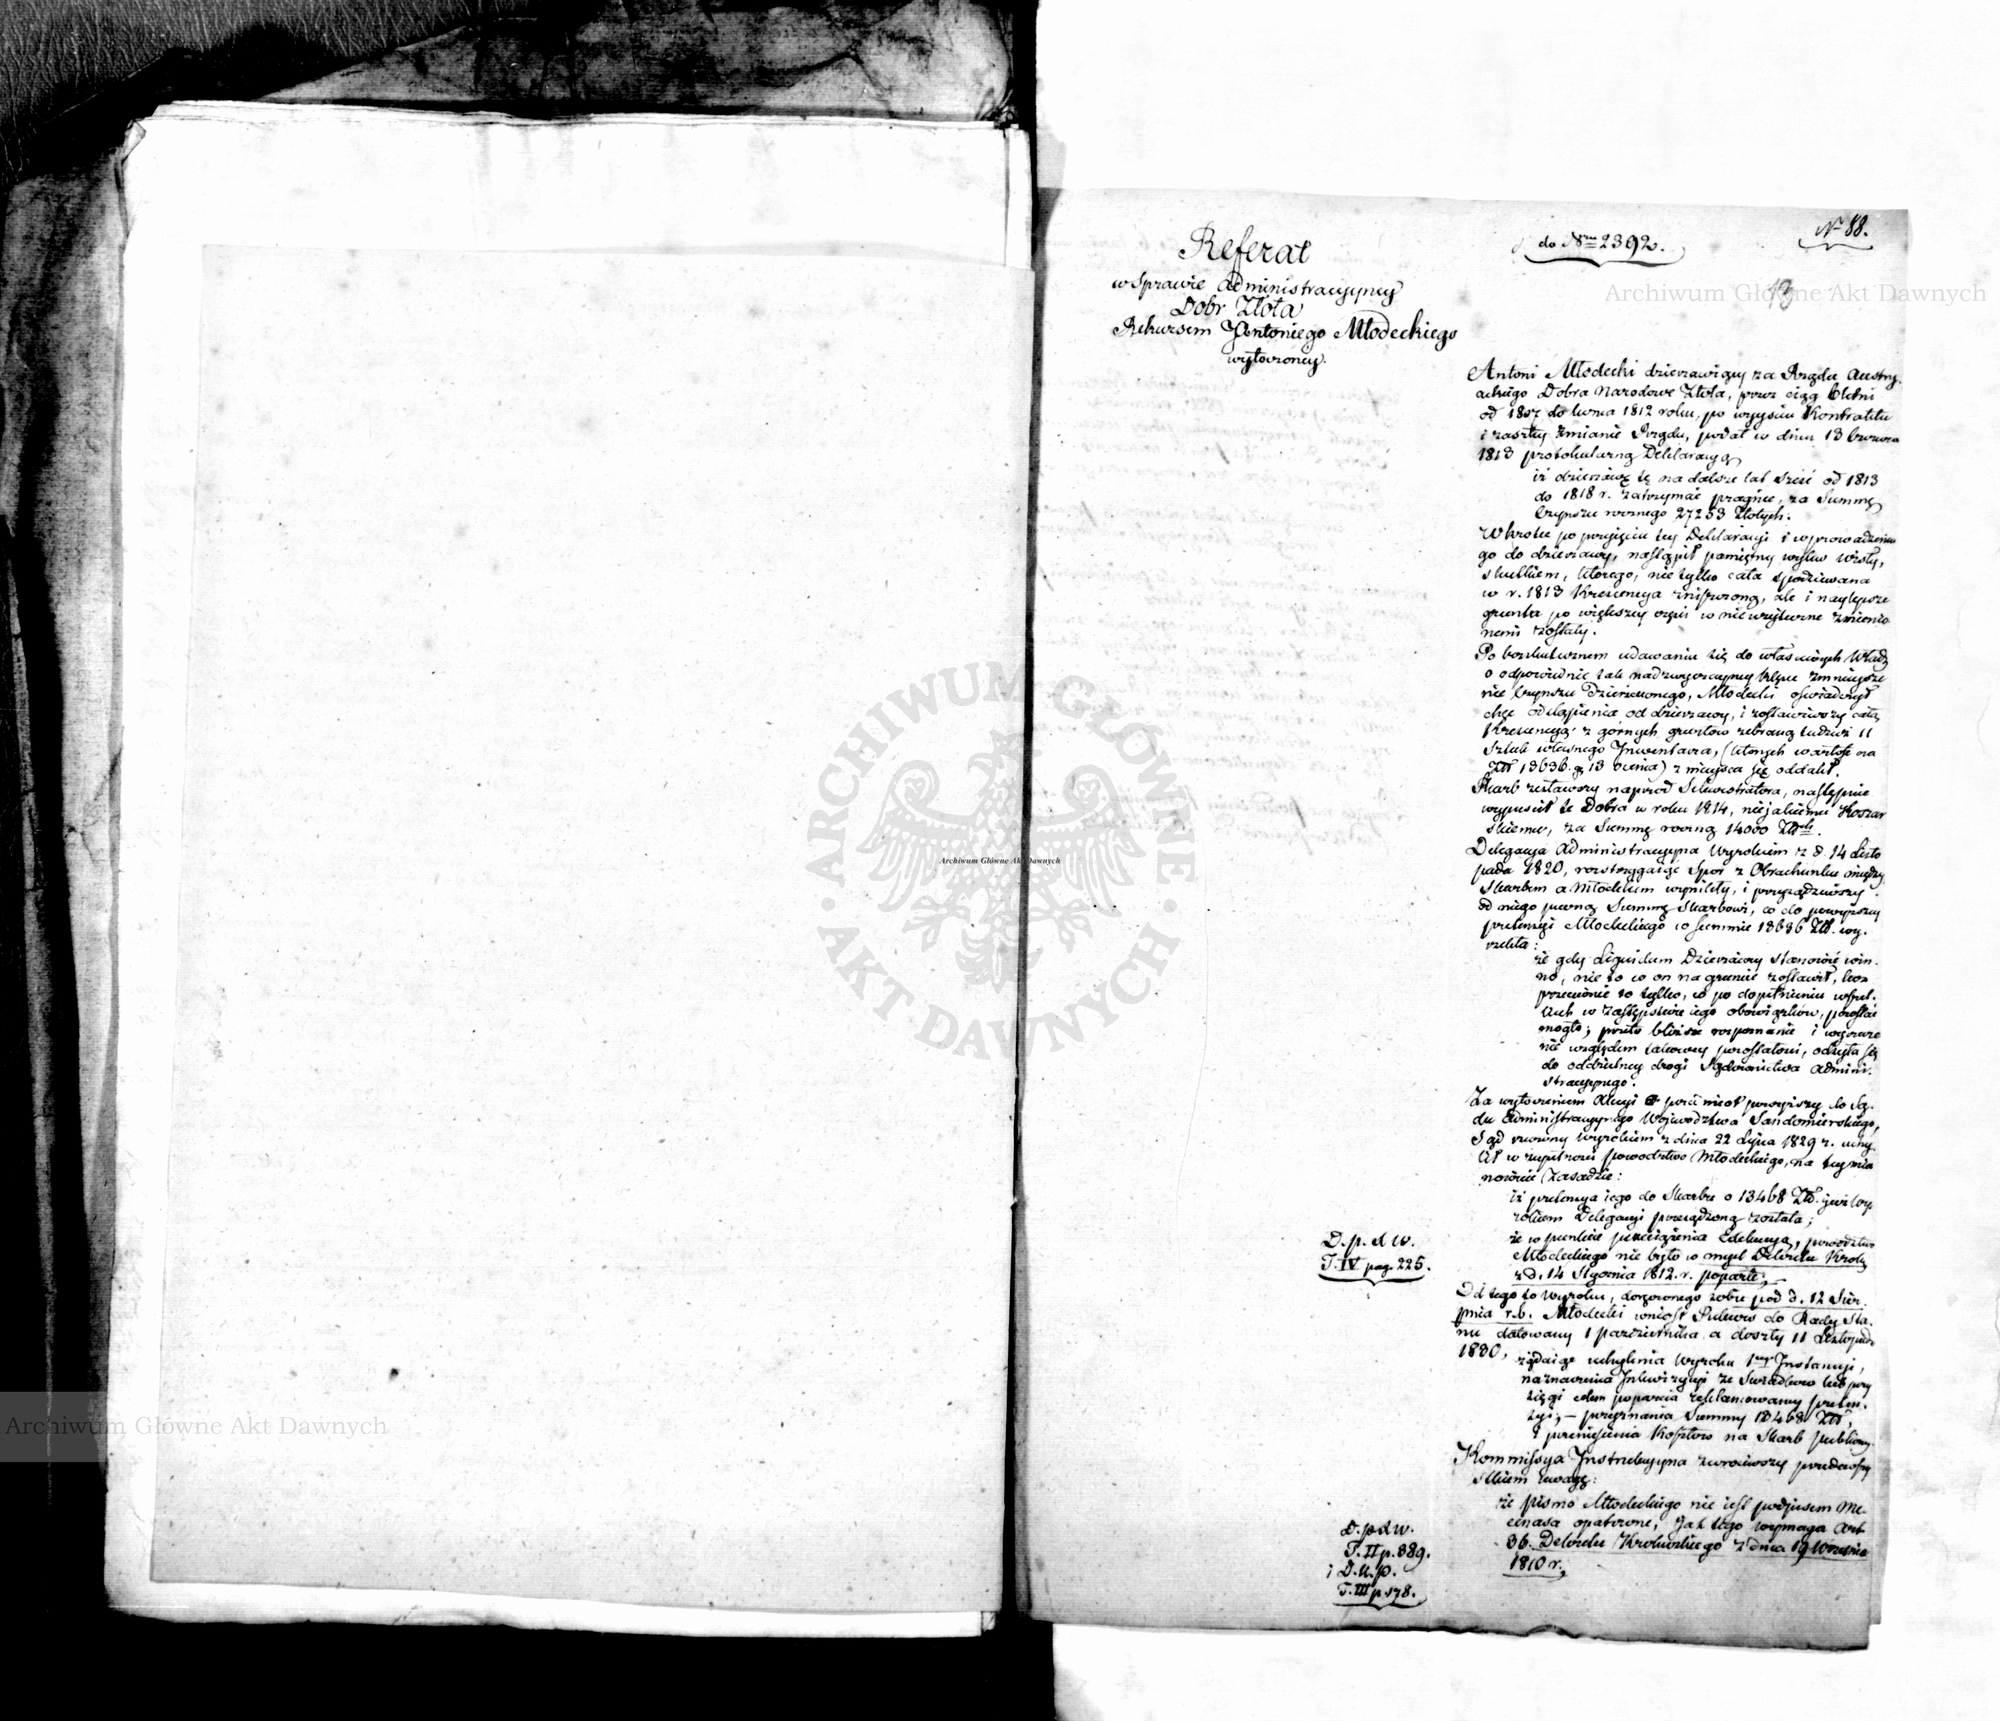 Nº 88.
do Nru 2392.
13
Referat
w Sprawie Administracyjney
Dobr Złota
Rekursem Antoniego Młodeckiego
wytoczoney.
Antoni Młodecki dzierzawiący za Rządu Austry-
ackiego Dobra Narodowe Złota, przez ciąg letni
od 1807 do 1812 roku, po wyyściu Kontraktu
i zaszłey zmianie Rządu, podał w dniu 13 Czerwca
1813 protokularną Deklaracyą
iż dzierżawę tę na dalsze lat sześć od 1813
do 1818 r. zatrzymać pragnie, za Summę
Czynszu rocznego 27253 Złotych.
Wkrotce po przyjęciu tey Deklaracyi i wprowadzeniu
go do dzierzawy, nastąpił pamiętny wylew Wisły,
skutkiem, którego, nie tylko cała spodziewana
w r. 1813 Krescencya zniszczoną, ale i naylepsze
grunta po większey części w nieużyteczne zmienio-
nemi zostały.
Po bezskutecznem udawaniu się do właściwych Władz
o odpowiednie tak nadzwyczayney klęsce zmnieysze-
nie Czynszu Dzierżawnego, Młodecki oświadczył
chęć odstąpienia od dzierzawy, i zostawiwszy całą
Krescencyą z górnych gruntów zebraną tudzież 11
sztuk własnego Inwentarza, (których wartość na
Złł 13636 g 13 ocenia) z mieysca się oddalił.
Skarb zesławszy naprzod Sekwestratora, następnie
wypuścił te Dobra w roku 1814, niejakiemu Koszar-
skiemu, za Summę roczną 14000 Złłch.
Delegacya Administracyjna Wyrokiem z d. 14 Listo-
pada 1820, rozstrzygając Spor z Obrachunku między
Skarbem a Młodeckim wynikły, i przysądziwszy
od niego pewną Summę Skarbowi, co do powyższey
pretensyi Młodeckiego w Summie 13636 Złł. wy-
rzekła:
że gdy Liquidum Dzierżawy stanowić win-
no, nie to co on na gruncie zostawił, lecz
przeciwnie to tylko, co po dopełnieniu wszel-
kich w zastępstwie iego obowiązków, pozostać
mogło; przeto bliższe rozpoznanie i wyrzecze-
nie względem takowey pozostałości, odsyła się
do oddzielney drogi Sądownictwa Admini-
stracyjnego.
Za wytoczeniem Akcyi o przedmiot powyższy do Są-
du Administracyjnego Wojewodztwa Sandomierskiego,
Sąd rzeczony wyrokiem z dnia 22 Lipca 1829 r. uchy-
lił w zupełności powodztwo Młodeckiego, na tey mia-
nowicie zasadzie:
iż pretensya iego do Skarbu o 13468 Złł. już Wy-
rokiem Delegacyi przesądzoną została;
że w punkcie przeciążenia Exekucyą, powodztwo
Młodeckiego nie było w myśl Dekretu Krola
z d. 14 Stycznia 1812. r. poparte;
Od tego to Wyroku, doręczonego sobie pod d. 12 Sier-
pnia r. b. Młodecki wniosł Rekurs do Rady Sta-
nu datowany 1 października a doszły 11 Listopada
1830,
żądaiąc uchylenia Wyroku 1wszej Instancyi,
naznaczenia Inkwizycyi ze Świadków
celem poparcia reklamowaney preten-
syi; – przyznania Summy 13468 Złł,
i przeniesienia Kosztow na Skarb publiczny.
Kommissya Instrukcyjna zwrociwszy przedewszy-
stkiem uwagę:
że pismo Młodeckiego nie iest podpisem Me-
cenasa opatrzone, jak tego wymaga Art.
36. Dekretu Krolewskiego z dnia 19 Września
1810 r.,
D. p. d w.
T. IV pag. 225.
D. p d w.
T. II p. 389.
i D. K. p.
T. III p. 178.
Archiwum Główne Akt Dawnych
Archiwum Główne Akt Dawnych
Archiwum Główne Akt Dawnych
ARCHIWUM GŁÓWNE
AKT DAWNYCH